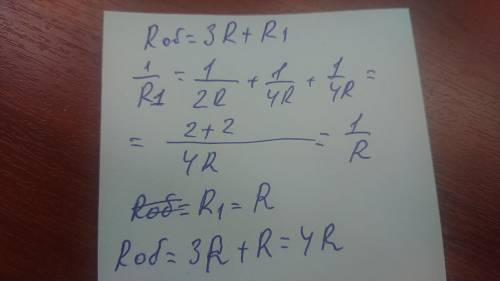 Rоб=3R+R1
1/R1 = 1/2R + 1/4R + 1/4R =
= 2+2/4R = 1/R
Rоб= R1=R
Rоб=3R+R=4R